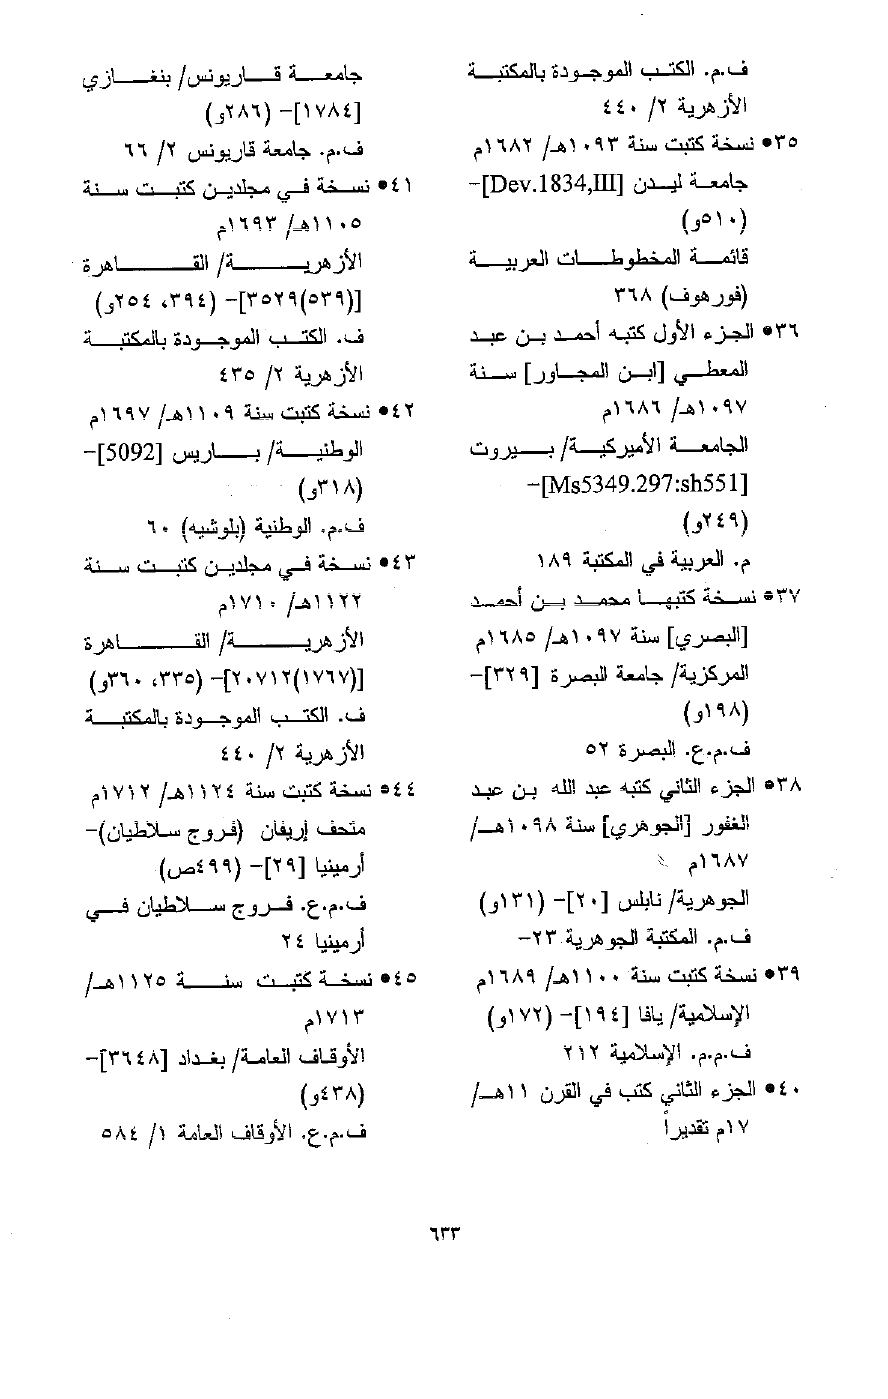 ف.م. الكتب الموجودة بالمكتبة
الأزهرية ٢/ ٤٤٠
٣٥• نسخة كتبت سنة ١٠٩٣هـ/ ١٦٨٢م
جامعة ليدن [Dev.1834,III]-
(٥١٠و)
قائمة المخطوطات العربية
(فورهوف) ٣٦٨
٣٦• الجزء الأول كتبه أحمد بن عبد
المعطي [ابن المجاور] سنة
١٠٩٧هـ/ ١٦٨٦م
الجامعة الأميركية/ بيروت
[Ms5349.297:sh551]-
(٢٤٩و)
م. العربية في المكتبة ١٨٩
٣٧• نسخة كتبها محمد بن أحمد
[البصري] سنة ١٠٩٧هـ/ ١٦٨٥م
المركزية/ جامعة البصرة [٣٢٩]-
(١٩٨و)
ف.م.ع. البصرة ٥٢
٣٨• الجزء الثاني كتبه عبد الله بن عبد
الغفور [الجوهري] سنة ١٠٩٨هـ/
١٦٨٧م
الجوهرية/ نابلس [٢٠]- (١٣١و)
ف.م. المكتبة الجوهرية ٢٣-
٣٩• نسخة كتبت سنة ١١٠٠هـ/ ١٦٨٩م
الإسلامية/ يافا [١٩٤]- (١٧٢و)
ف.م.م. الإسلامية ٢١٢
٤٠• الجزء الثاني كتب في القرن ١١هـ/
١٧م تقديراً
جامعة قاريونس/ بنغازي
[١٧٨٤]- (٢٨٦و)
ف.م. جامعة قاريونس ٢/ ٦٦
٤١• نسخة في مجلدين كتبت سنة
١١٠٥هـ/ ١٦٩٣م
الأزهرية/ القاهرة
[(٥٣٩)٣٥٢٩]- (٣٩٤، ٢٥٤و)
ف. الكتب الموجودة بالمكتبة
الأزهرية ٢/ ٤٣٥
٤٢• نسخة كتبت سنة ١١٠٩هـ/ ١٦٩٧م
الوطنية/ باريس [5092]-
(٣١٨و)
ف.م. الوطنية (بلوشيه) ٦٠
٤٣• نسخة في مجلدين كتبت سنة
١١٢٢هـ/ ١٧١٠م
الأزهرية/ القاهرة
[(١٧٦٧)٢٠٧١٢]- (٣٣٥، ٣٦٠و)
ف. الكتب الموجودة بالمكتبة
الأزهرية ٢/ ٤٤٠
٤٤• نسخة كتبت سنة ١١٢٤هـ/ ١٧١٢م
متحف إريفان (فروج سلاطيان)-
أرمينيا [٢٩]- (٤٩٩ص)
ف.م.ع. فروج سلاطيان في
أرمينيا ٢٤
٤٥• نسخة كتبت سنة ١١٢٥هـ/
١٧١٣م
الأوقاف العامة/ بغداد [٣٦٤٨]-
(٤٣٨و)
ف.م.ع. الأوقاف العامة ١/ ٥٨٤
٦٣٣